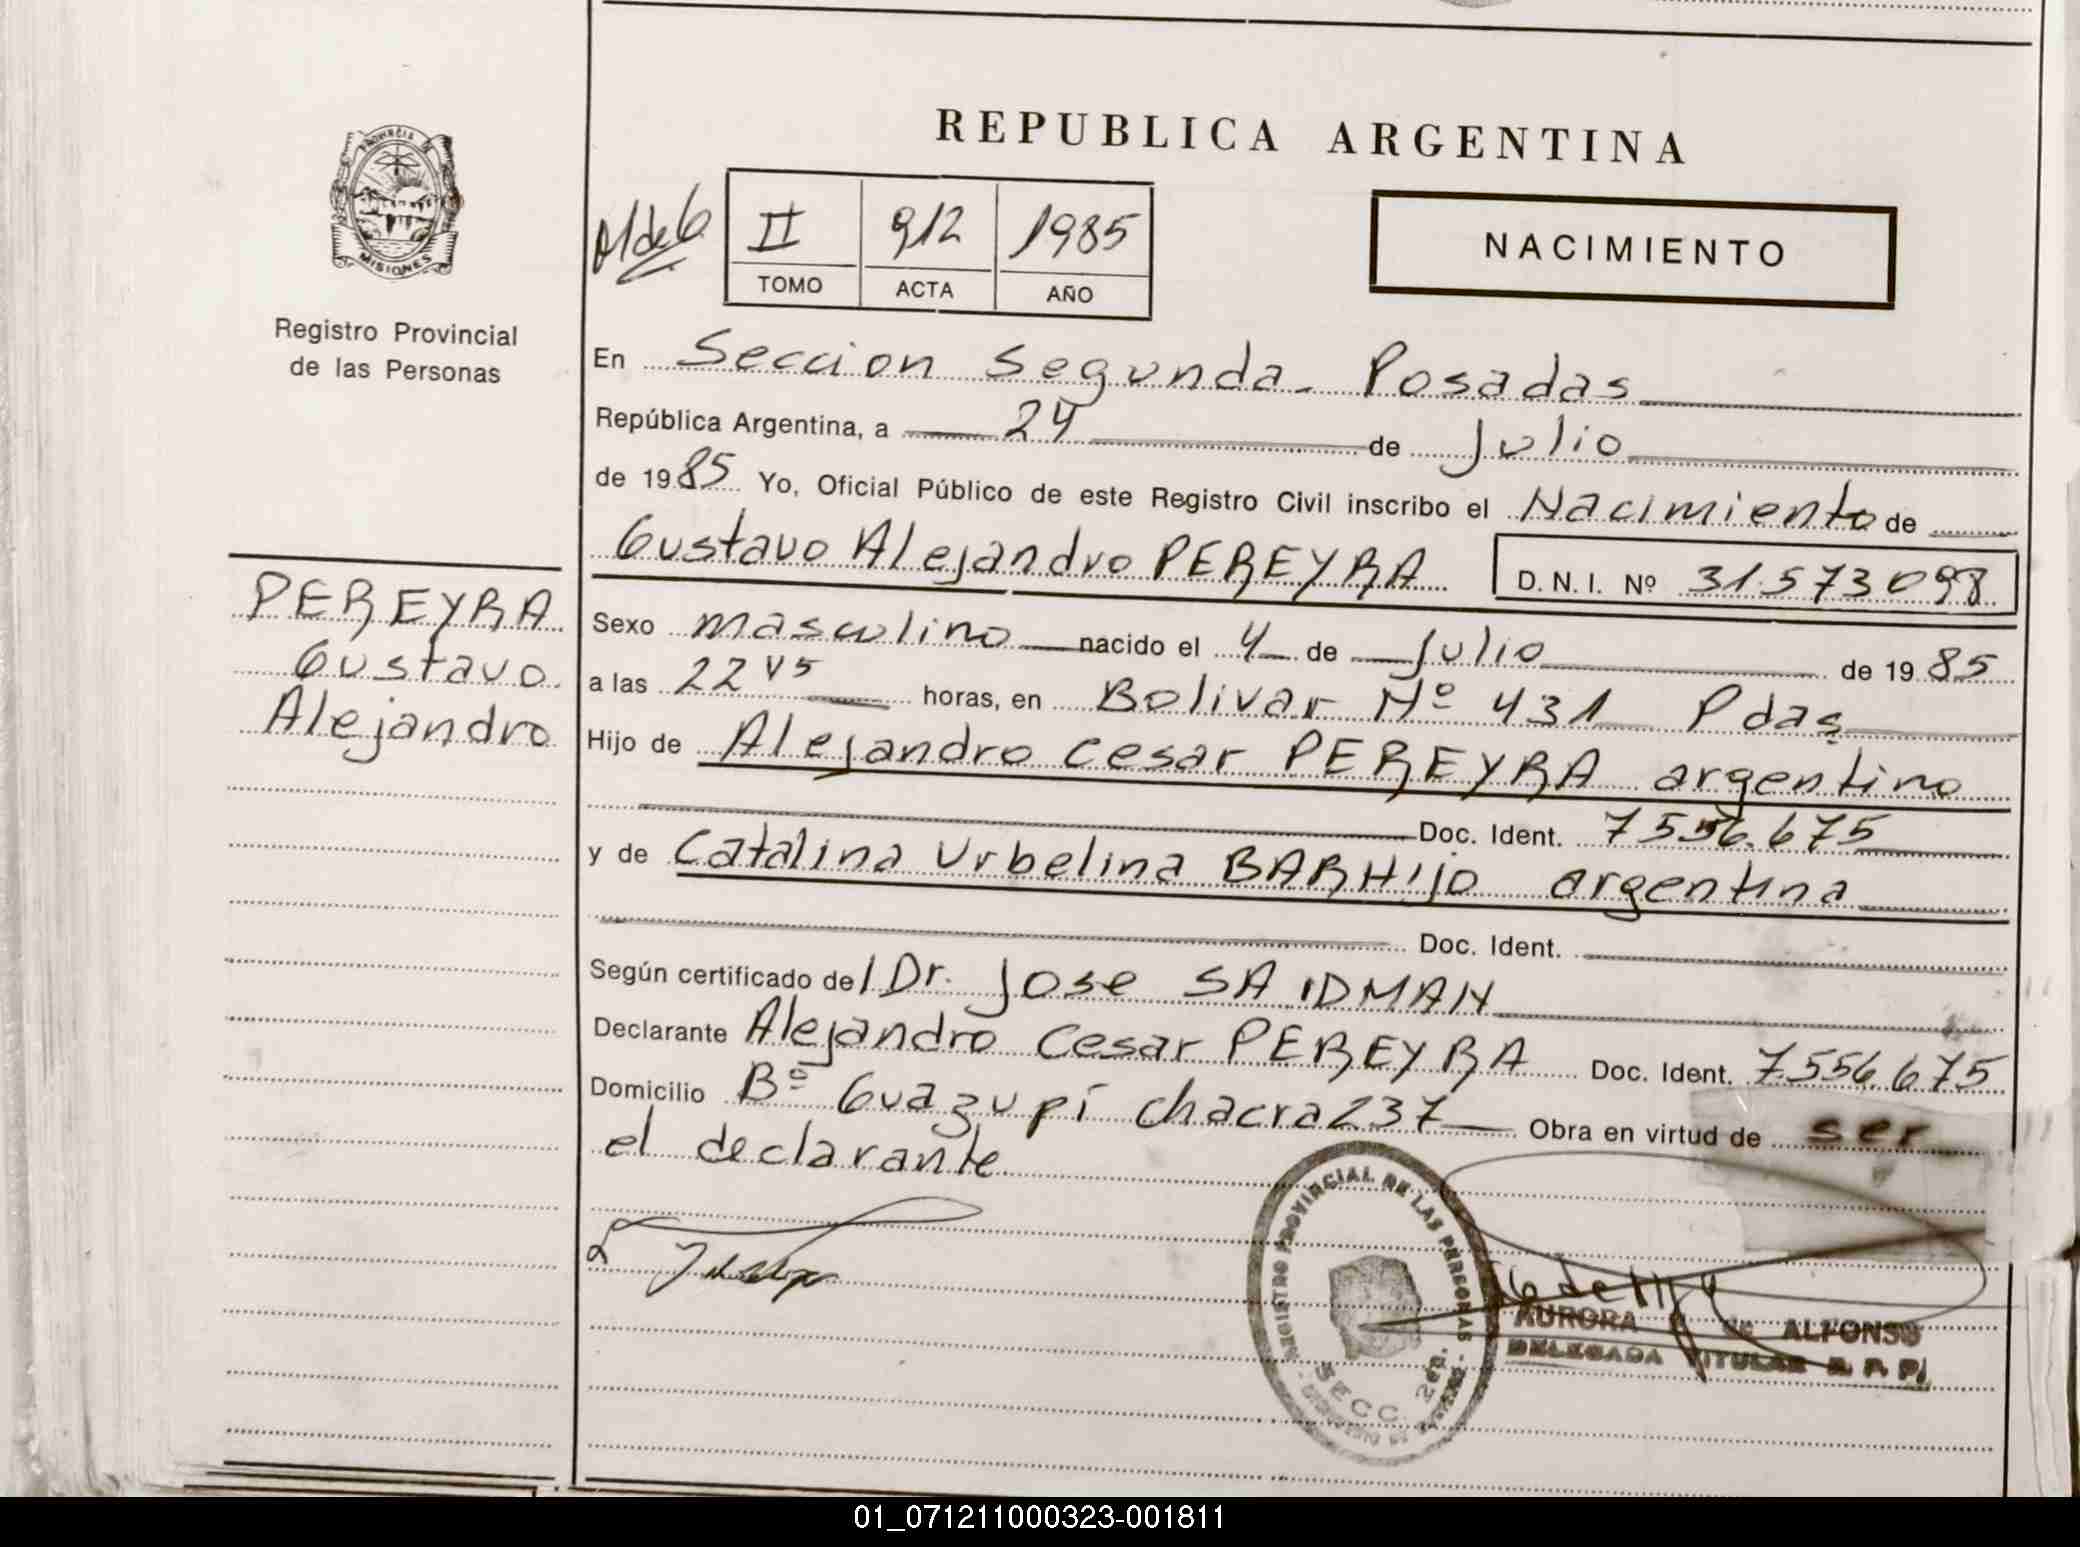 REPUBLICA ARGENTINA
PROVINCIA DE
MISIONES
Registro Provincial
de las Personas
II 912 1985
TOMO ACTA AÑO
NACIMIENTO
En Seccion Segunda. Posadas
República Argentina, a 24 de Julio
de 1985 Yo, Oficial Público de este Registro Civil inscribo el Nacimiento de
Gustavo Alejandro PEREYRA D. N. I. Nº 31.573098
PEREYRA
Gustavo
Alejandro
Sexo masculino nacido el 4 de Julio de 1985
a las 22 45 horas, en Bolivar Nº 431 Pdas
Hijo de Alejandro Cesar PEREYRA argentino
Doc. Ident. 7556.675
y de Catalina Urbelina BARHIJO argentina
Doc. Ident.
Según certificado del Dr. Jose SAIDMAN
Declarante Alejandro Cesar PEREYRA Doc. Ident. 7.556.675
Domicilio Bº Guazupi chacra 237 Obra en virtud de ser
el declarante
REGISTRO PROVINCIAL DE LAS PERSONAS
SECC. 2da.
AURORA de ALFONSO
DELEGADA TITULAR R. P. P.
01_071211000323-001811